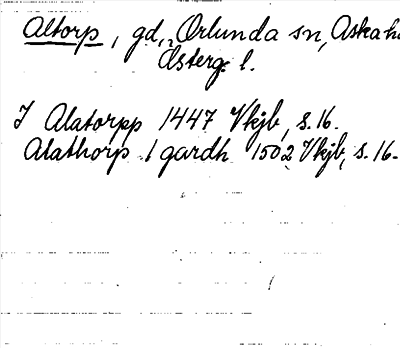 Altorp, gd, Örlunda sn, Aska h
Österg. l.
I Alatorpp 1447 Vkjb, s. 16.
Alathorp 1 gardh 1502 Vkjb, s. 16.